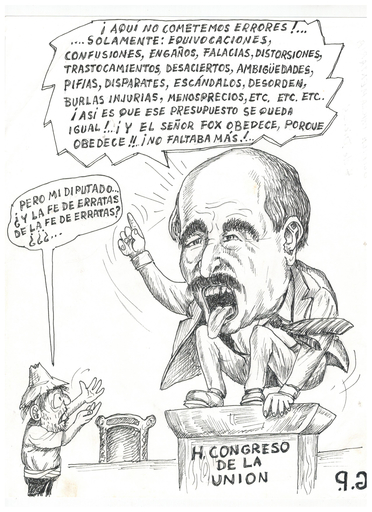 ¡ AQUÍ NO COMETEMOS ERRORES !...
....SOLAMENTE: EQUIVOCACIONES,
CONFUSIONES, ENGAÑOS, FALACIAS, DISTORSIONES,
TRASTOCAMIENTOS, DESACIERTOS, AMBIGÜEDADES,
PIFIAS, DISPARATES, ESCÁNDALOS, DESORDEN,
BURLAS INJURIAS, MENOSPRECIOS, ETC, ETC. ETC.
¡ ASÍ ES QUE ESE PRESUPUESTO SE QUEDA
IGUAL !..¡ Y EL SEÑOR FOX OBEDECE, PORQUE
OBEDECE !! ¡ NO FALTABA MÁS !..
PERO MI DIPUTADO...
¿Y LA FE DE ERRATAS
DE LA FE DE ERRATAS?
¿¿¿...
H. CONGRESO
DE LA
UNION
G.P.